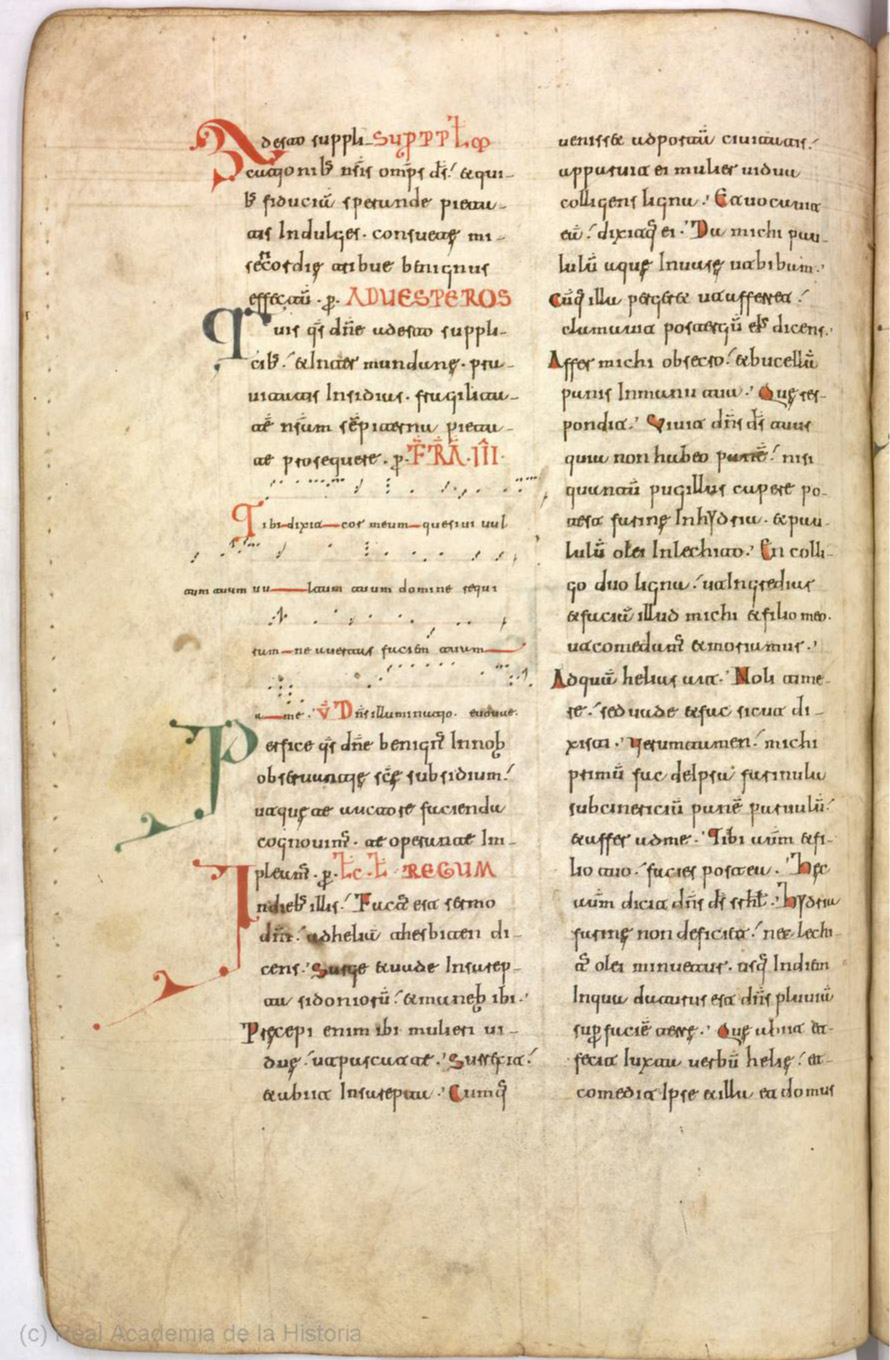 Adesto suppli- Sup ppłm
cationib; nr̄is om̄ps d̄s. & qui-
b; fiduciā sperande pieta-
tis Indulges. consuetę mi-
sericordię tribue benignus
effectū. ꝑ. AD UESPEROS
Tuis q̄s dn̄e adesto suppli-
cib;. & Inter mundanę pra-
uitatis Insidias. fragilita-
tē nr̄am sēpiterna pieta-
te prosequere. ꝑ. FR̄A. III.
Tibi dixit cor meum quesiui uul
tum tuum uultum tuum domine requi
ram ne auertas faciem tuam
a me. V̄ Dn̄s illuminatio. euouae.
Perfice q̄s dn̄e benign̄ Innob
obseruantię scę̄ subsidium.
ut quę te auctore facienda
cognouim̄. te operante Im-
pleam̄. ꝑ. Łc. ł REGUM
Indieb; illis. Factꝰ est sermo
dn̄i. ad heliā thesbiten di-
cens. Surge & uade Insarep-
ta sidoniorū. & manebis ibi.
Pręcepi enim ibi mulieri ui-
duę. ut pascat te. Surrexit.
& abiit Insarepta. Cumq̄
uenisset ad portā ciuitatis.
apparuit ei mulier uidua
colligens ligna. Et uocauit
eā. dixitq̄ ei. Da michi pau-
lulū aquę Inuase ut bibam.
Cūq̄ illa pergeret ut afferret.
clamauit post tergū ei; dicens.
Affer michi obsecro. & bucellā
panis Inmanu tua. Quę res-
pondit. Viuit dn̄s d̄s tuus
quia non habeo panē. nisi
quantū pugillus capere po-
test farinę Inhydria. & pau-
lulū olei Inlechito. En colli-
go duo ligna. ut Ingrediar
& faciā illud michi & filio meo.
ut comedam̄ & moriamur.
Ad quā helias ait. Noli time-
re. sed uade & fac sicut di-
xisti. Verumtamen. michi
primū fac de Ipsa farinula
subcinericiū panē paruulū.
& affer ad me. Tibi autm̄ & fi-
lio tuo. facies postea. Hęc
autm̄ dicit dn̄s d̄s isrł. Hydria
farinę non deficiet. nec lechi-
tꝰ olei minuetur. usq̄ Indiem
Inqua daturus est dn̄s pluuiā
sup faciē terrę. Quę abiit et
fecit iuxta uerbū helię. et
comedit Ipse & illa et domus
(c) Real Academia de la Historia